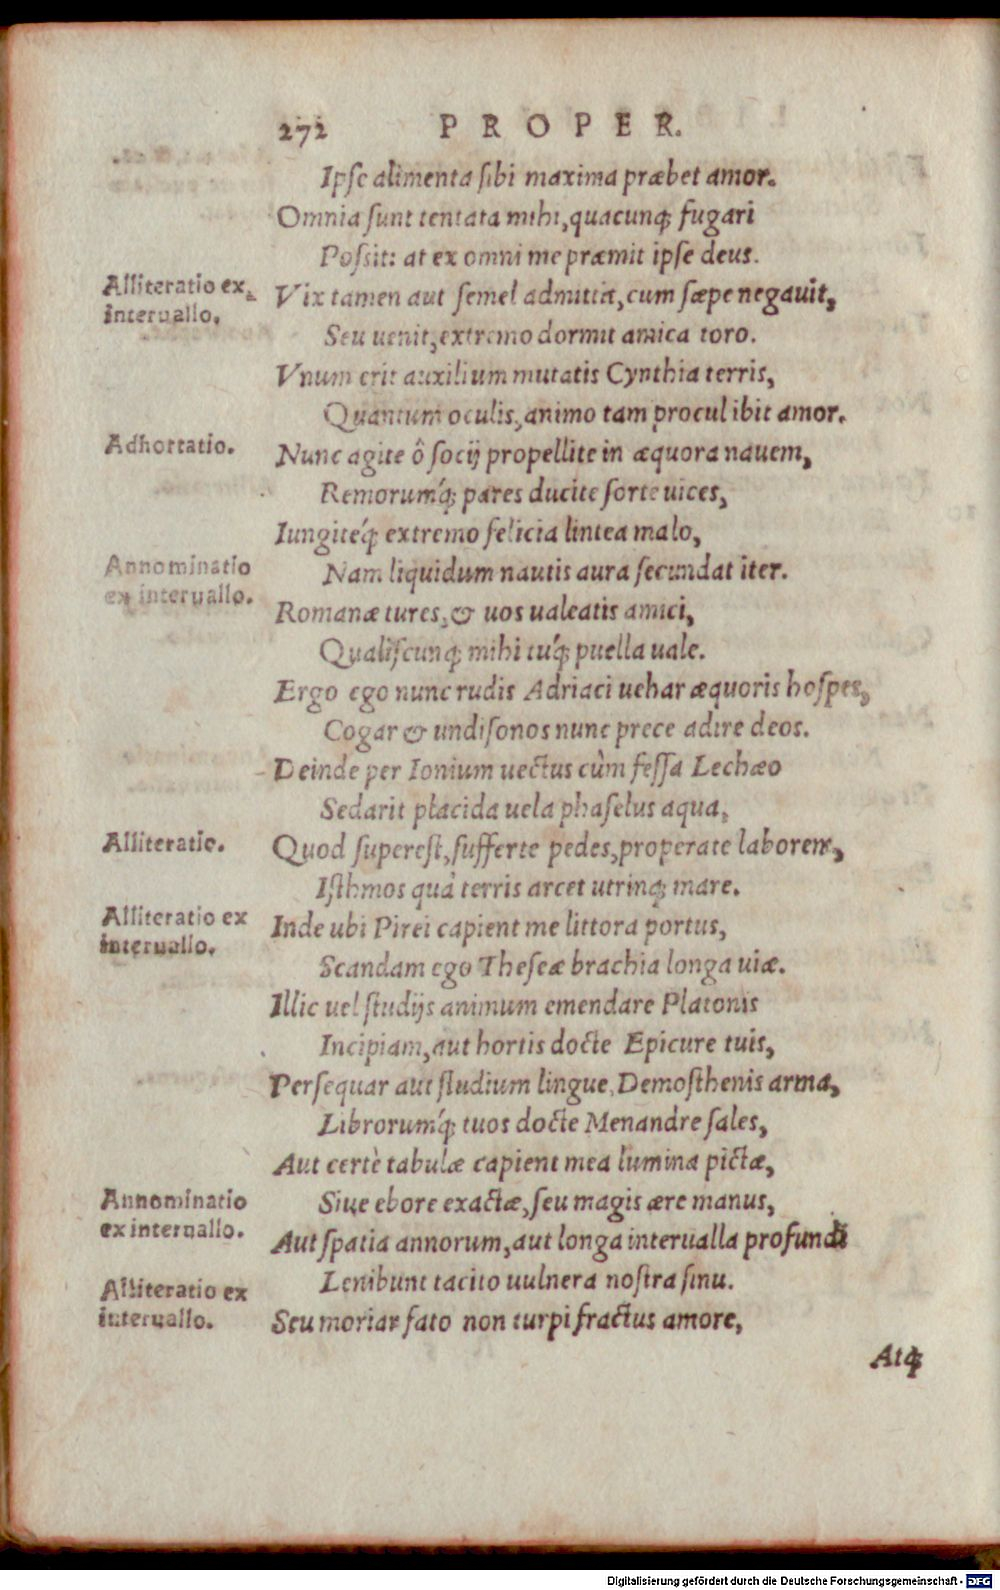 272 PROPER.
Ipse alimenta sibi maxima præbet amor.
Omnia sunt tentata mihi, quacunq; fugari
Possit: at ex omni me præmit ipse deus.
Alliteratio ex
interuallo.
Vix tamen aut semel admittit, cum sæpe negauit,
Seu uenit, extremo dormit amica toro.
Vnum erit auxilium mutatis Cynthia terris,
Quantum oculis, animo tam procul ibit amor.
Adhortatio.
Nunc agite ô socij propellite in æquora nauem,
Remorumq́; pares ducite sorte uices,
Iungiteq́; extremo felicia lintea malo,
Annominatio
ex interuallo.
Nam liquidum nautis aura secundat iter.
Romanæ tures, & uos ualeatis amici,
Qualiscunq; mihi tuq́; puella uale.
Ergo ego nunc rudis Adriaci uehar æquoris hospes,
Cogar & undisonos nunc prece adire deos.
Deinde per Ionium uectus cùm fessa Lechæo
Sedarit placida uela phaselus aqua,
Alliteratio.
Quod superest, sufferte pedes, properate laborem,
Isthmos quà terris arcet utrinq; mare.
Alliteratio ex
interuallo.
Inde ubi Pirei capient me littora portus,
Scandam ego Theseæ brachia longa uiæ.
Illic uel studijs animum emendare Platonis
Incipiam, aut hortis docte Epicure tuis,
Persequar aut studium lingue, Demosthenis arma,
Librorumq́; tuos docte Menandre sales,
Aut certè tabulæ capient mea lumina pictæ,
Annominatio
ex interuallo.
Siue ebore exactæ, seu magis ære manus,
Aut spatia annorum, aut longa interualla profundi
Lenibunt tacito uulnera nostra sinu.
Alliteratio ex
interuallo.
Seu moriar fato non turpi fractus amore,
Atq;
Digitalisierung gefördert durch die Deutsche Forschungsgemeinschaft - DFG